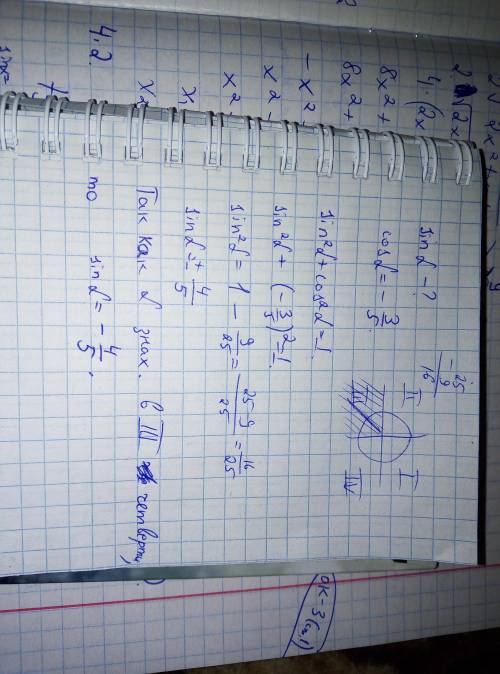 sin α - ?
cos α = - 3/5.
sin²α + cos²α = 1.
sin²α + (- 3/5)² = 1.
sin²α = 1 - 9/25 = 25-9/25 = 16/25
sin α = ± 4/5
Так как α знах. в III четверти,
то sin α = - 4/5.
- 25
9
16
II
I
III
IV
4.2
8x² +
8x² +
- x²
x² -
x² -
OK-3 (